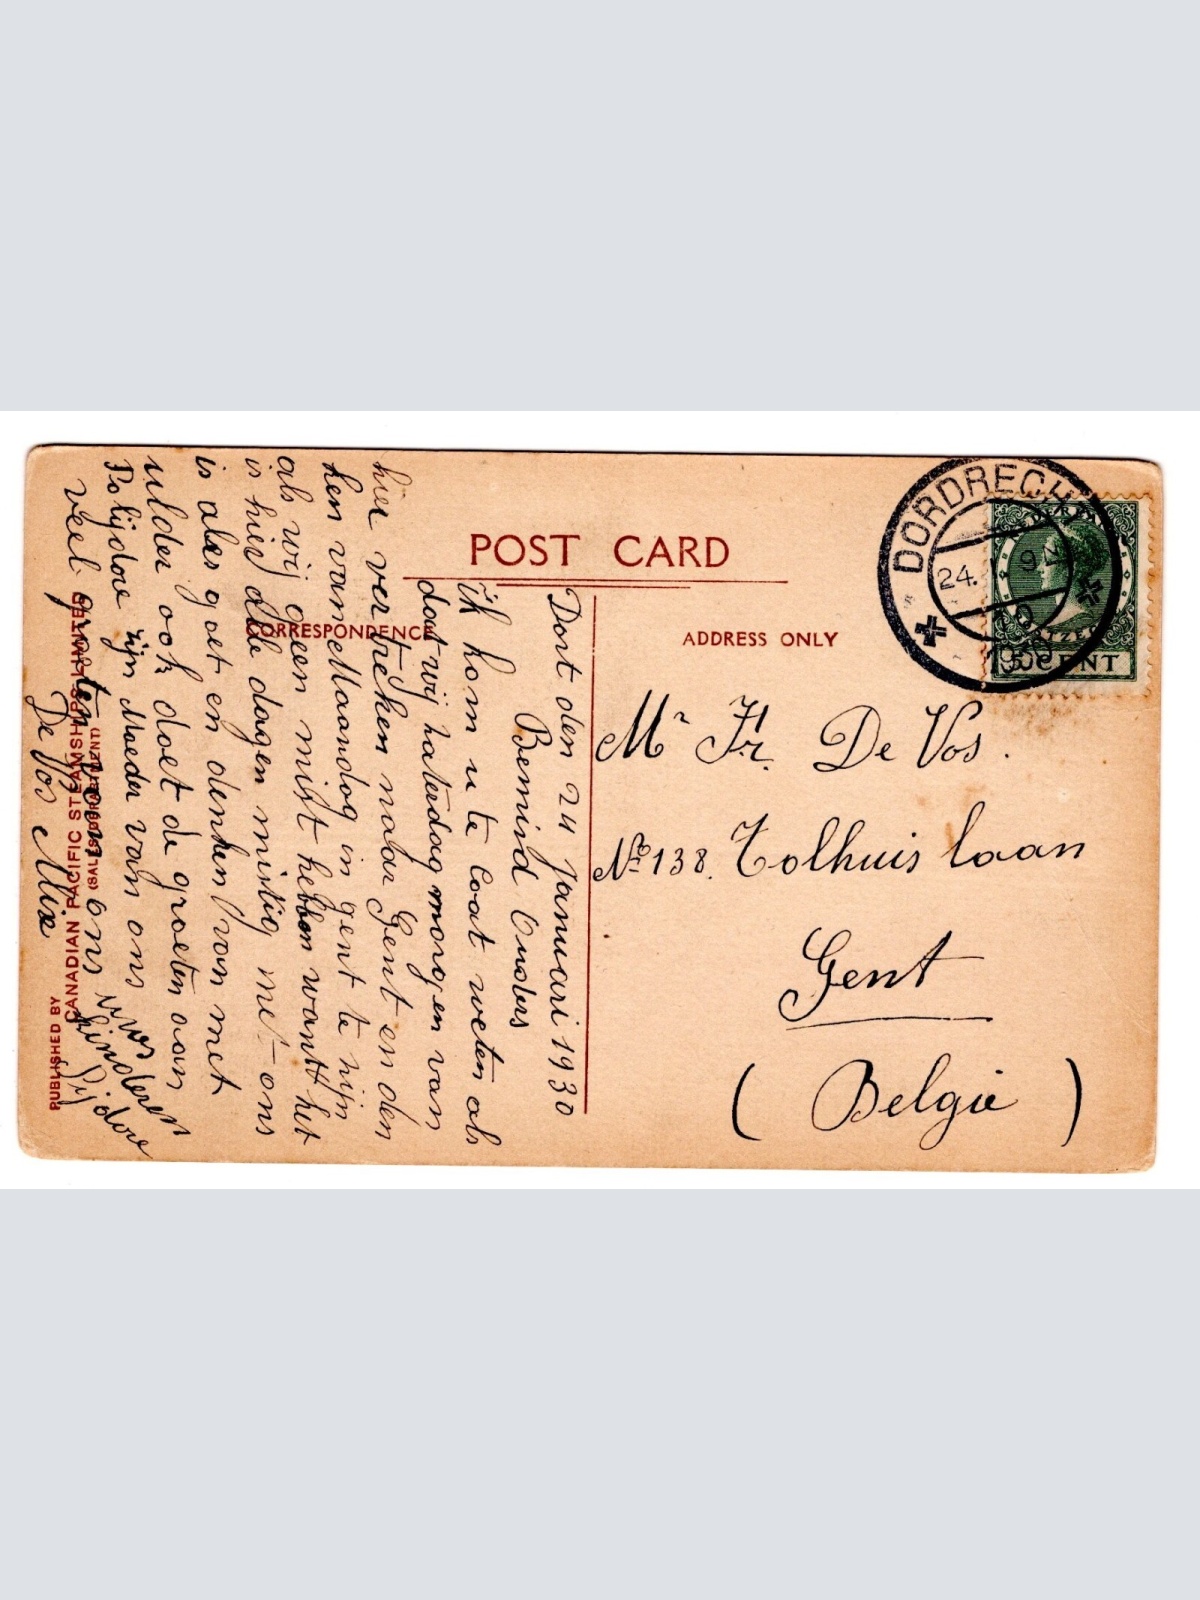 POST CARD
CORRESPONDENCE
ADDRESS ONLY
DORDRECHT
24.
1930
5 CENT
Dort den 24 Januari 1930
Bemind Ouders
ik kom u te laat weten als
dat wij zaterdag morgen van
hier vertreken naar Gent en den
ken van Maandag in gent te zijn
als wij geen mist hebben want het
is hier alle dagen mistig met ons
is alles goet en denken van met
ulder ook doet de groeten aan
Polijdore zijn Moeder van ons
veel groeten van ons
kinderen
De Vos Alix
Mr Fr. De Vos.
No 138. Tolhuis laan
Gent
( Belgie )
PUBLISHED BY
CANADIAN PACIFIC STEAMSHIPS LIMITED
(SALES DEPARTMENT)